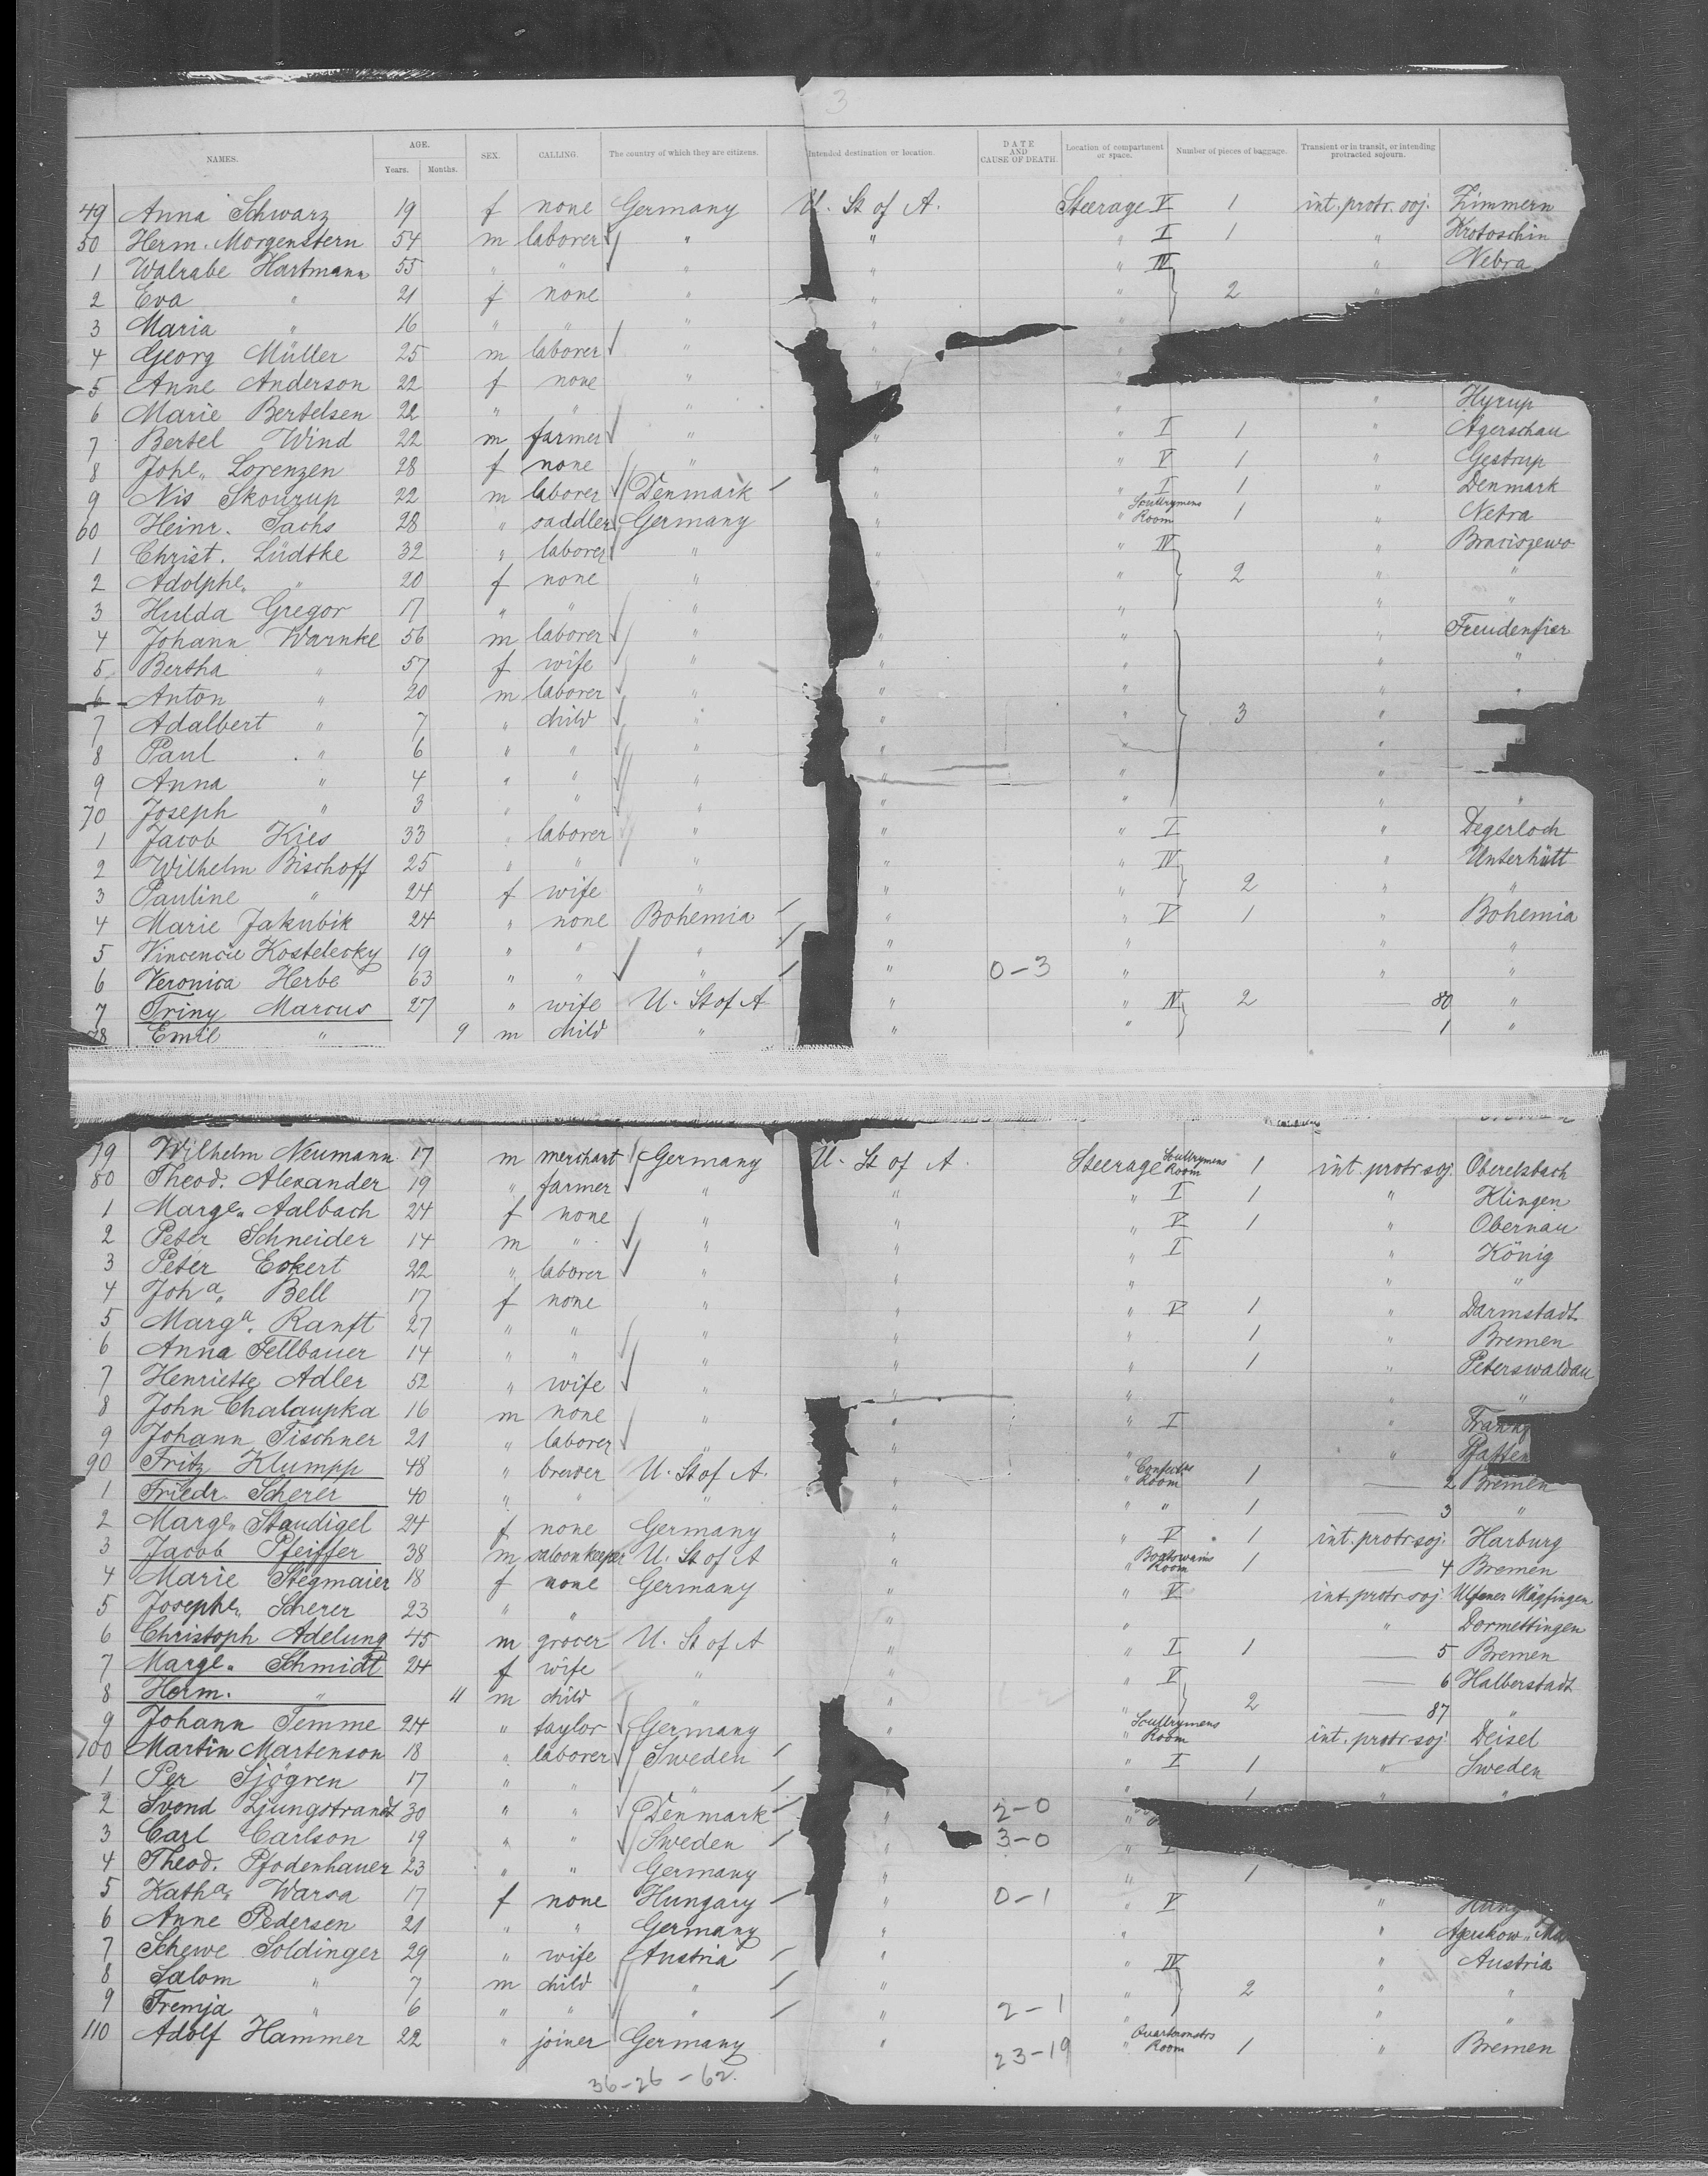 3
NAMES. AGE. Years. Months. SEX. CALLING. The country of which they are citizens. Intended destination or location. DATE AND CAUSE OF DEATH. Location of compartment or space. Number of pieces of baggage. Transient or in transit, or intending protracted sojourn.
49 Anna Schwarz 19 f none Germany U. St of A. Steerage V 1 int. protr. soj. Zimmern
50 Herm. Morgenstern 54 m laborer " " " I 1 " Krotoschin
1 Walrabe Hartmann 55 " " " " " IV " Nebra
2 Eva " 21 f none " " " 2 "
3 Maria " 16 " " " " "
4 Georg Müller 25 m laborer " " "
5 Anne Anderson 22 f none " " "
6 Marie Bertelsen 22 " " " " " Hyrup
7 Bertel Wind 22 m farmer " " " I 1 " Agerschau
8 Johe" Lorenzen 28 f none " " " V 1 " Gestrup
9 Nis Skourup 22 m laborer Denmark " " I 1 " Denmark
60 Heinr. Sachs 28 " saddler Germany " " Scullrymens Room 1 " Netra
1 Christ. Lüdtke 32 " laborer " " " IV " Braciszewo
2 Adolphe" " 20 f none " " " 2 " "
3 Hulda Gregor 17 " " " " " "
4 Johann Warnke 56 m laborer " " " " Freudenfier
5 Bertha " 57 f wife " " " " "
6 Anton " 20 m laborer " " " " "
7 Adalbert " 7 " child " " " 3 "
8 Paul " 6 " " " " " "
9 Anna " 4 " " " " " "
70 Joseph " 3 " " " " " " "
1 Jacob Kies 33 " laborer " " " I " Degerloch
2 Wilhelm Bischoff 25 " " " " " IV " Unterhütt
3 Pauline " 24 f wife " " " 2 " "
4 Marie Jakubik 24 " none Bohemia " " V 1 " Bohemia
5 Vincencie Kostelecky 19 " " " " " " "
6 Veronica Herbe 63 " " " " 0-3 " " "
7 Triny Marcus 27 " wife U. St of A " " IV 2 — 80 "
78 Emil " 9 m child " " " — 1 "
79 Wilhelm Neumann 17 m merchant Germany U. St of A. Steerage Scullrymens Room 1 int. protr soj. Oberelsbach
80 Theod. Alexander 19 " farmer " " " I 1 " Klingen
1 Marge" Aalbach 24 f none " " " V 1 " Obernau
2 Peter Schneider 14 m " " " " I " König
3 Peter Eckert 22 " laborer " " " " "
4 Joha" Bell 17 f none " " " V 1 " Darmstadt
5 Marga. Ranft 27 " " " " " 1 " Bremen
6 Anna Fellbauer 14 " " " " " 1 " Peterswaldau
7 Henriette Adler 52 " wife " " " " "
8 John Chalaupka 16 m none " " " I "
9 Johann Tischner 21 " laborer " " " "
90 Fritz Klumpp 48 " brewer U. St of A. " " Room 1 — 2 Bremen
1 Friedr. Scherer 40 " " " " " " 1 — 3 "
2 Marge" Staudigel 24 f none Germany " " V 1 int. protr soj. Harburg
3 Jacob Pfeiffer 38 m saloonkeeper U. St of A " " Boatswains Room 1 — 4 Bremen
4 Marie Stegmaier 18 f none Germany " " V int. protr soj.
5 Josephe" Scherer 23 " " " " " Dormettingen
6 Christoph Adelung 45 m grocer U. St of A " " I 1 — 5 Bremen
7 Marge" Schmidt 24 f wife " " " V — 6 Halberstadt
8 Herm. " 11 m child " " 2 — 87 "
9 Johann Temme 24 " taylor Germany " " Scullrymens Room int. protr soj. Deisel
100 Martin Martenson 18 " laborer Sweden " I 1 " Sweden
1 Per Sjögren 17 " " " " 1 " "
2 Svend Ljungstrandt 30 " " Denmark " 2-0 "
3 Carl Carlson 19 " " Sweden " 3-0 " I
4 Theod. Pfodenhauer 23 " " Germany " " 1
5 Katha" Warsa 17 f none Hungary " 0-1 " V "
6 Anne Pedersen 21 " " Germany " " " Agerskow
7 Schewe Soldinger 29 " wife Austria " " IV " Austria
8 Salom " 7 m child " " " 2 " "
9 Fremja " 6 " " " " 2-1 " " "
110 Adolf Hammer 22 " joiner Germany " 23-19 " Room 1 " Bremen
36-26-62.